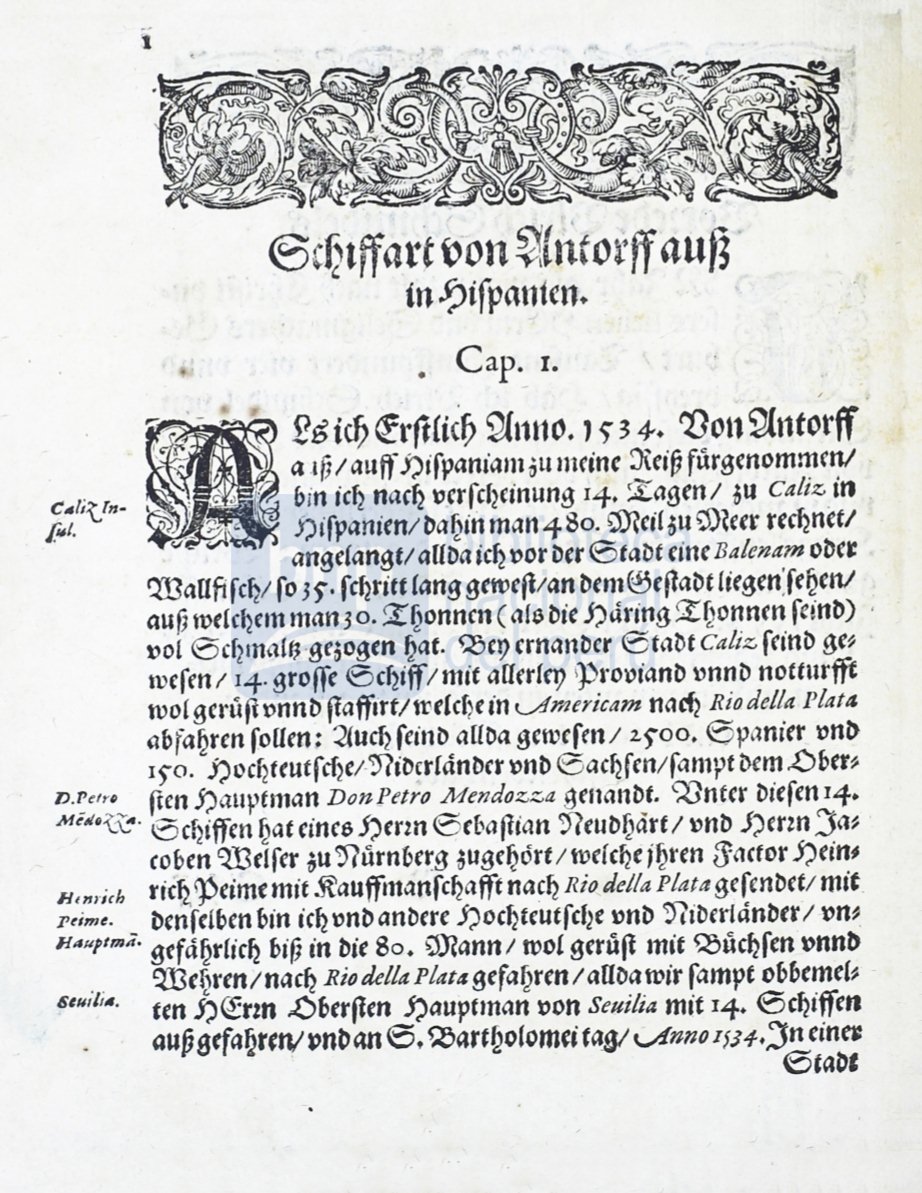 1
Schiffart von Antorff auß
in Hispanien.
Cap. 1.
ALs ich Erstlich Anno. 1534. Von Antorff
auß / auff Hispaniam zu meine Reiß fürgenommen /
bin ich nach verscheinung 14. Tagen / zu Caliz in
Hispanien / dahin man 480. Meil zu Meer rechnet /
angelangt / allda ich vor der Stadt eine Balenam oder
Wallfisch / so 35. schritt lang gewest / an dem Gestadt liegen sehen /
auß welchem man 30. Thonnen (als die Häring Thonnen seind)
vol Schmaltz gezogen hat. Bey ernander Stadt Caliz seind ge-
wesen / 14. grosse Schiff / mit allerley Proviand vnnd notturfft
wol gerüst vnnd staffirt / welche in Americam nach Rio della Plata
abfahren sollen: Auch seind allda gewesen / 2500. Spanier vnd
150. Hochteutsche / Niderländer vnd Sachsen / sampt dem Ober-
sten Hauptman Don Petro Mendozza genandt. Vnter diesen 14.
Schiffen hat eines Herrn Sebastian Neudhärt / vnd Herrn Ja-
coben Welser zu Nürnberg zugehört / welche jhren Factor Hein-
rich Peime mit Kauffmanschafft nach Rio della Plata gesendet / mit
denselben bin ich vnd andere Hochteutsche vnd Niderländer / vn-
gefährlich biß in die 80. Mann / wol gerüst mit Büchsen vnnd
Wehren / nach Rio della Plata gefahren / allda wir sampt obbemel-
ten HErrn Obersten Hauptman von Seuilia mit 14. Schiffen
außgefahren / vnd an S. Bartholomei tag / Anno 1534. In einer
Stadt
Caliz In-
sul.
D. Petro
Mēdozza.
Henrich
Peime.
Hauptmā.
Seuilia.
biblioteca
nacional
del perú